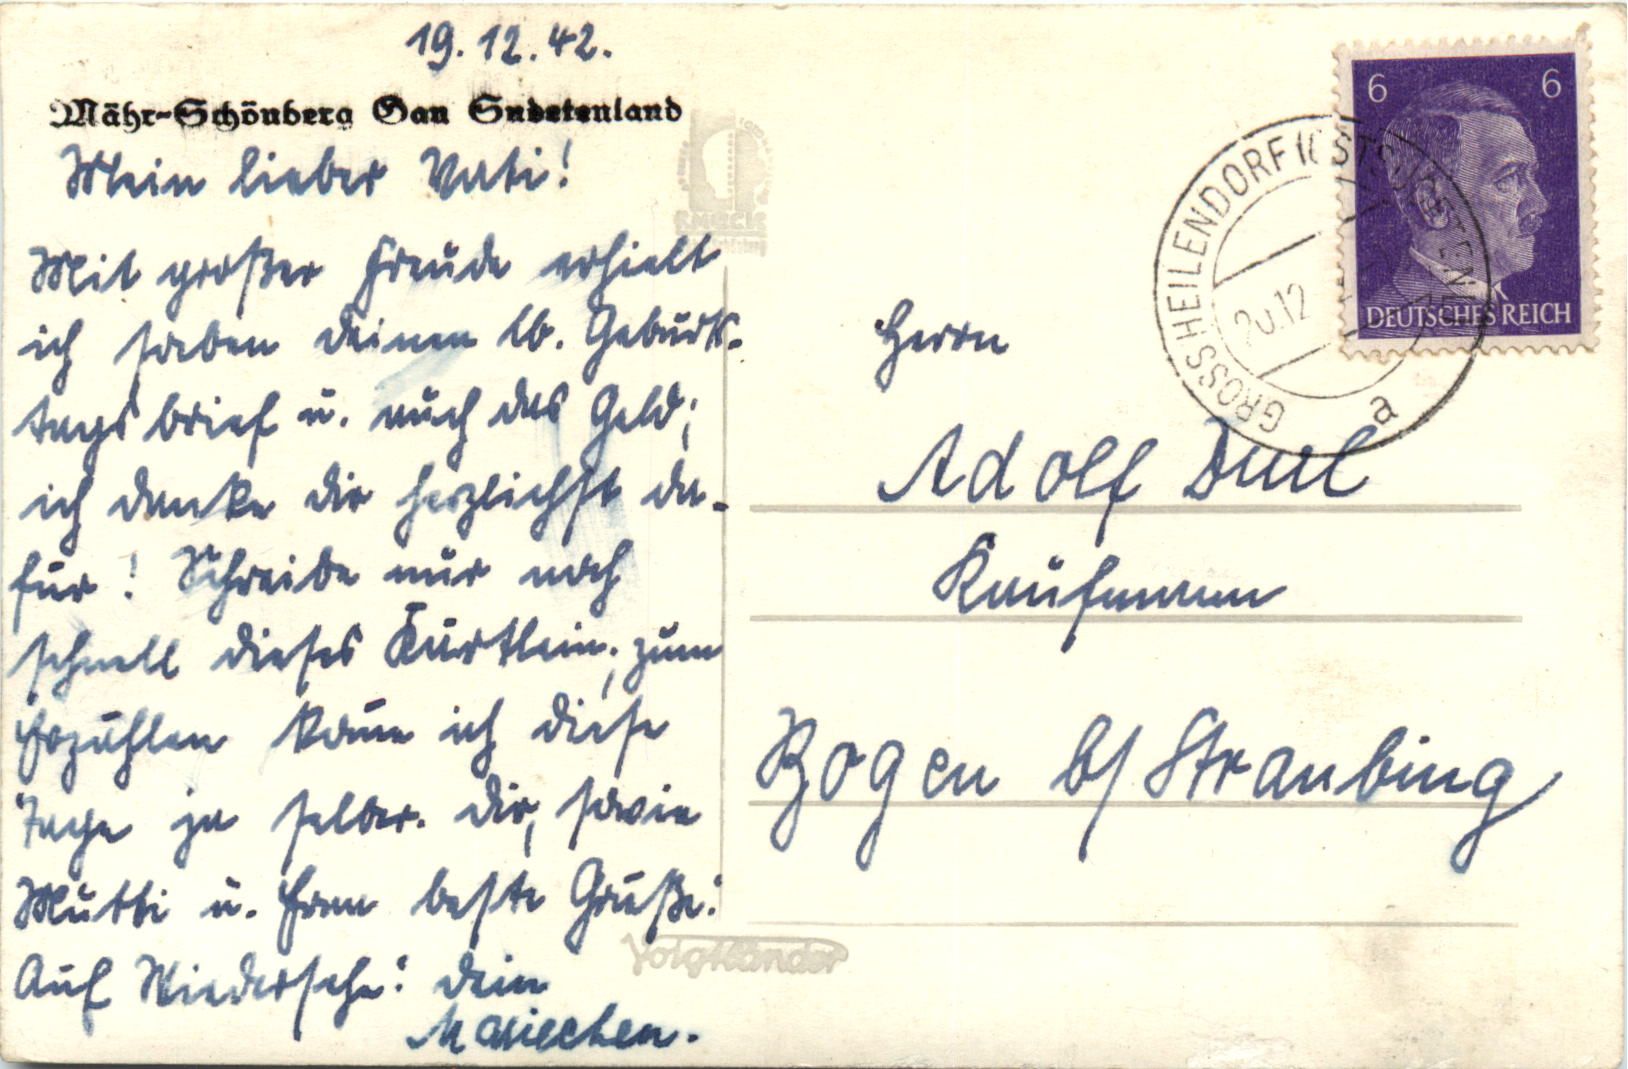 19.12.42.
Mähr-Schönberg Gau Sudetenland
Mein lieber Vati!
Mit großer Freude erhielt
ich soeben deinen lb. Geburts-
tagsbrief u. auch das Geld;
ich danke dir herzlichst da-
für! Schreibe nur noch
schnell dieses Kärtlein, zum
Erzählen komme ich diese
Tage ja selber. Dir, sowie
Mutti u. Fran beste Grüße!
Auf Wiedersehn! dein
Mariechen.
Voigtländer
6 6
DEUTSCHES REICH
GROSSHEILENDORF (OSTSUDETEN)
20.12
a
Herrn
Adolf
Kaufmann
Bogen b/ Straubing